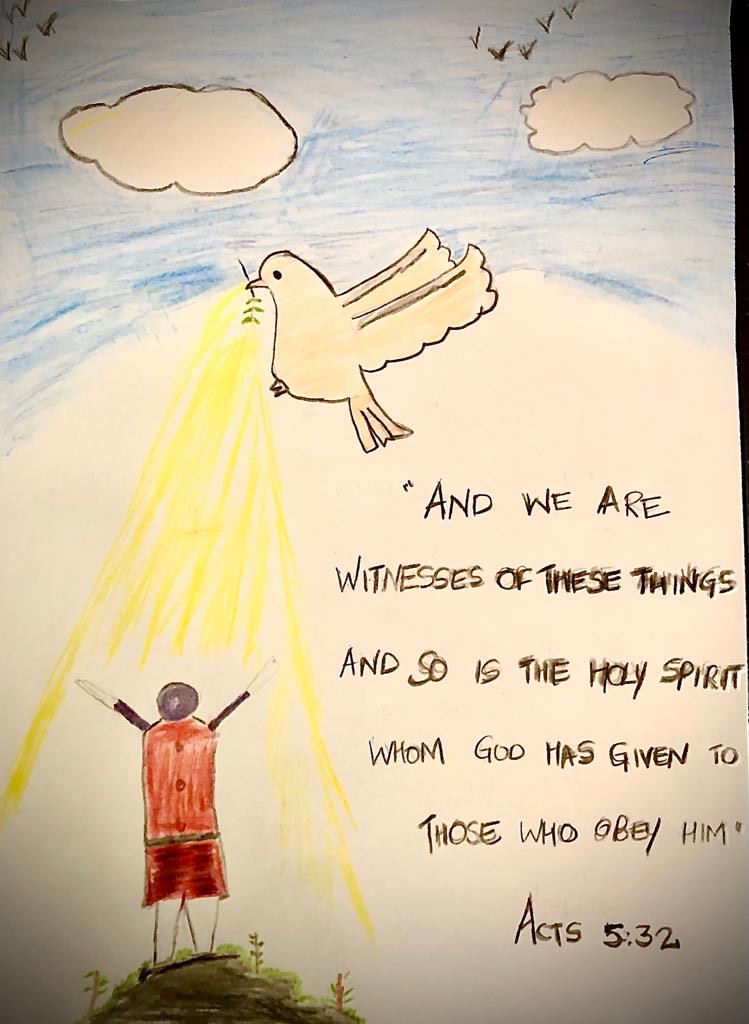 "AND WE ARE
WITNESSES OF THESE THINGS
AND SO IS THE HOLY SPIRIT
WHOM GOD HAS GIVEN TO
THOSE WHO OBEY HIM"
ACTS 5:32